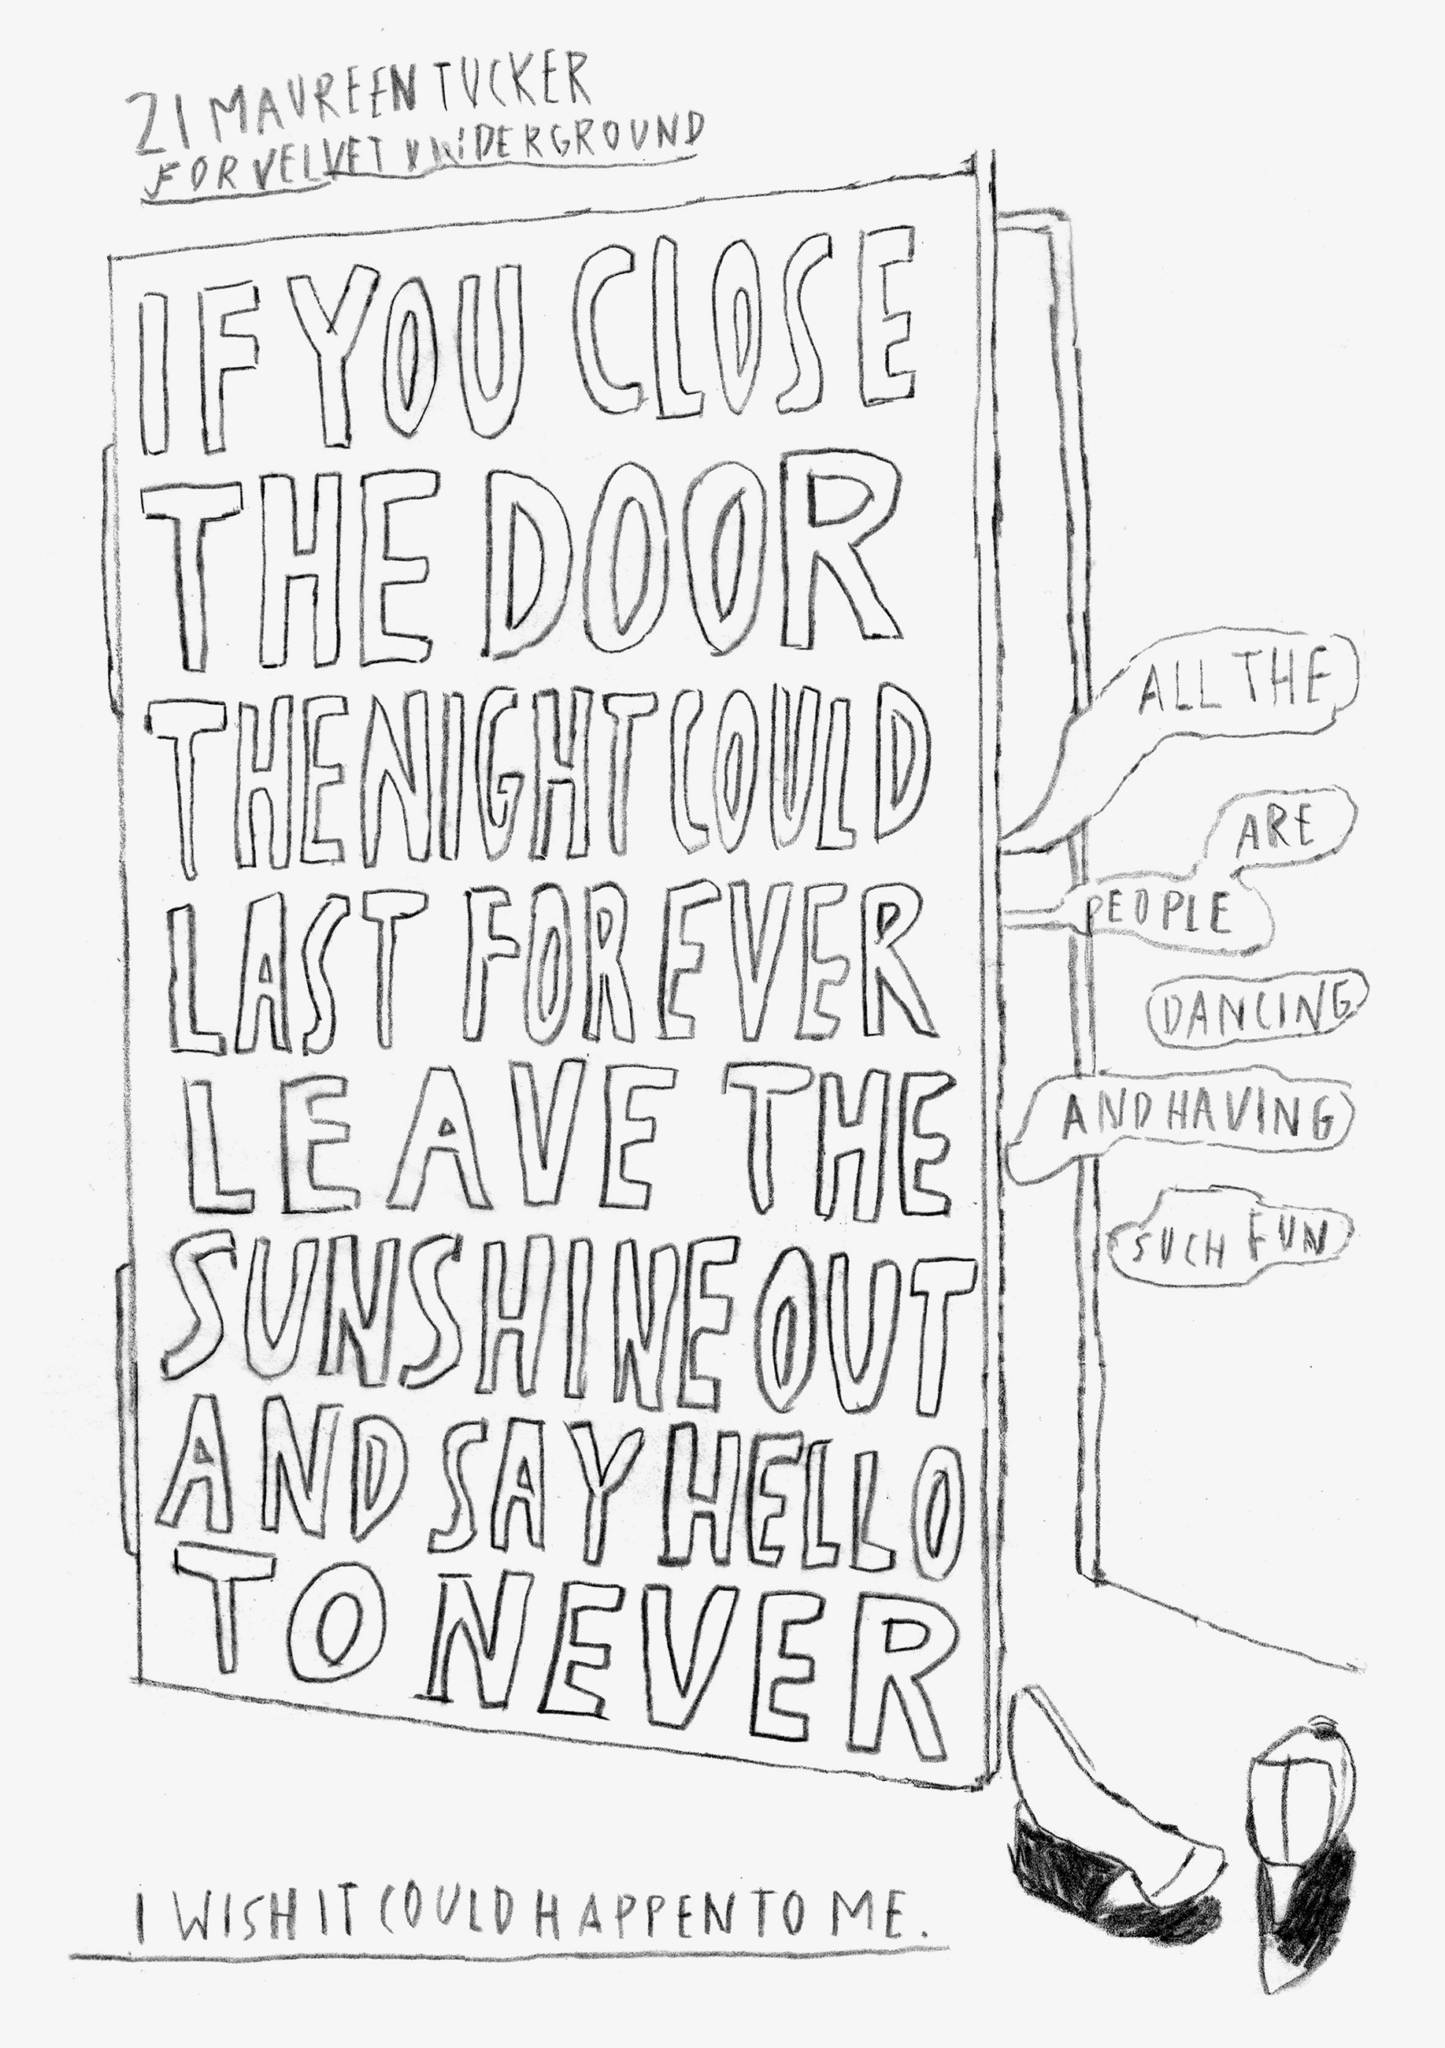 21 MAUREEN TUCKER
FOR VELVET UNDERGROUND
IF YOU CLOSE
THE DOOR
THE NIGHT COULD
LAST FOREVER
LEAVE THE
SUNSHINE OUT
AND SAY HELLO
TO NEVER
ALL THE
ARE
PEOPLE
DANCING
AND HAVING
SUCH FUN
I WISH IT COULD HAPPEN TO ME.